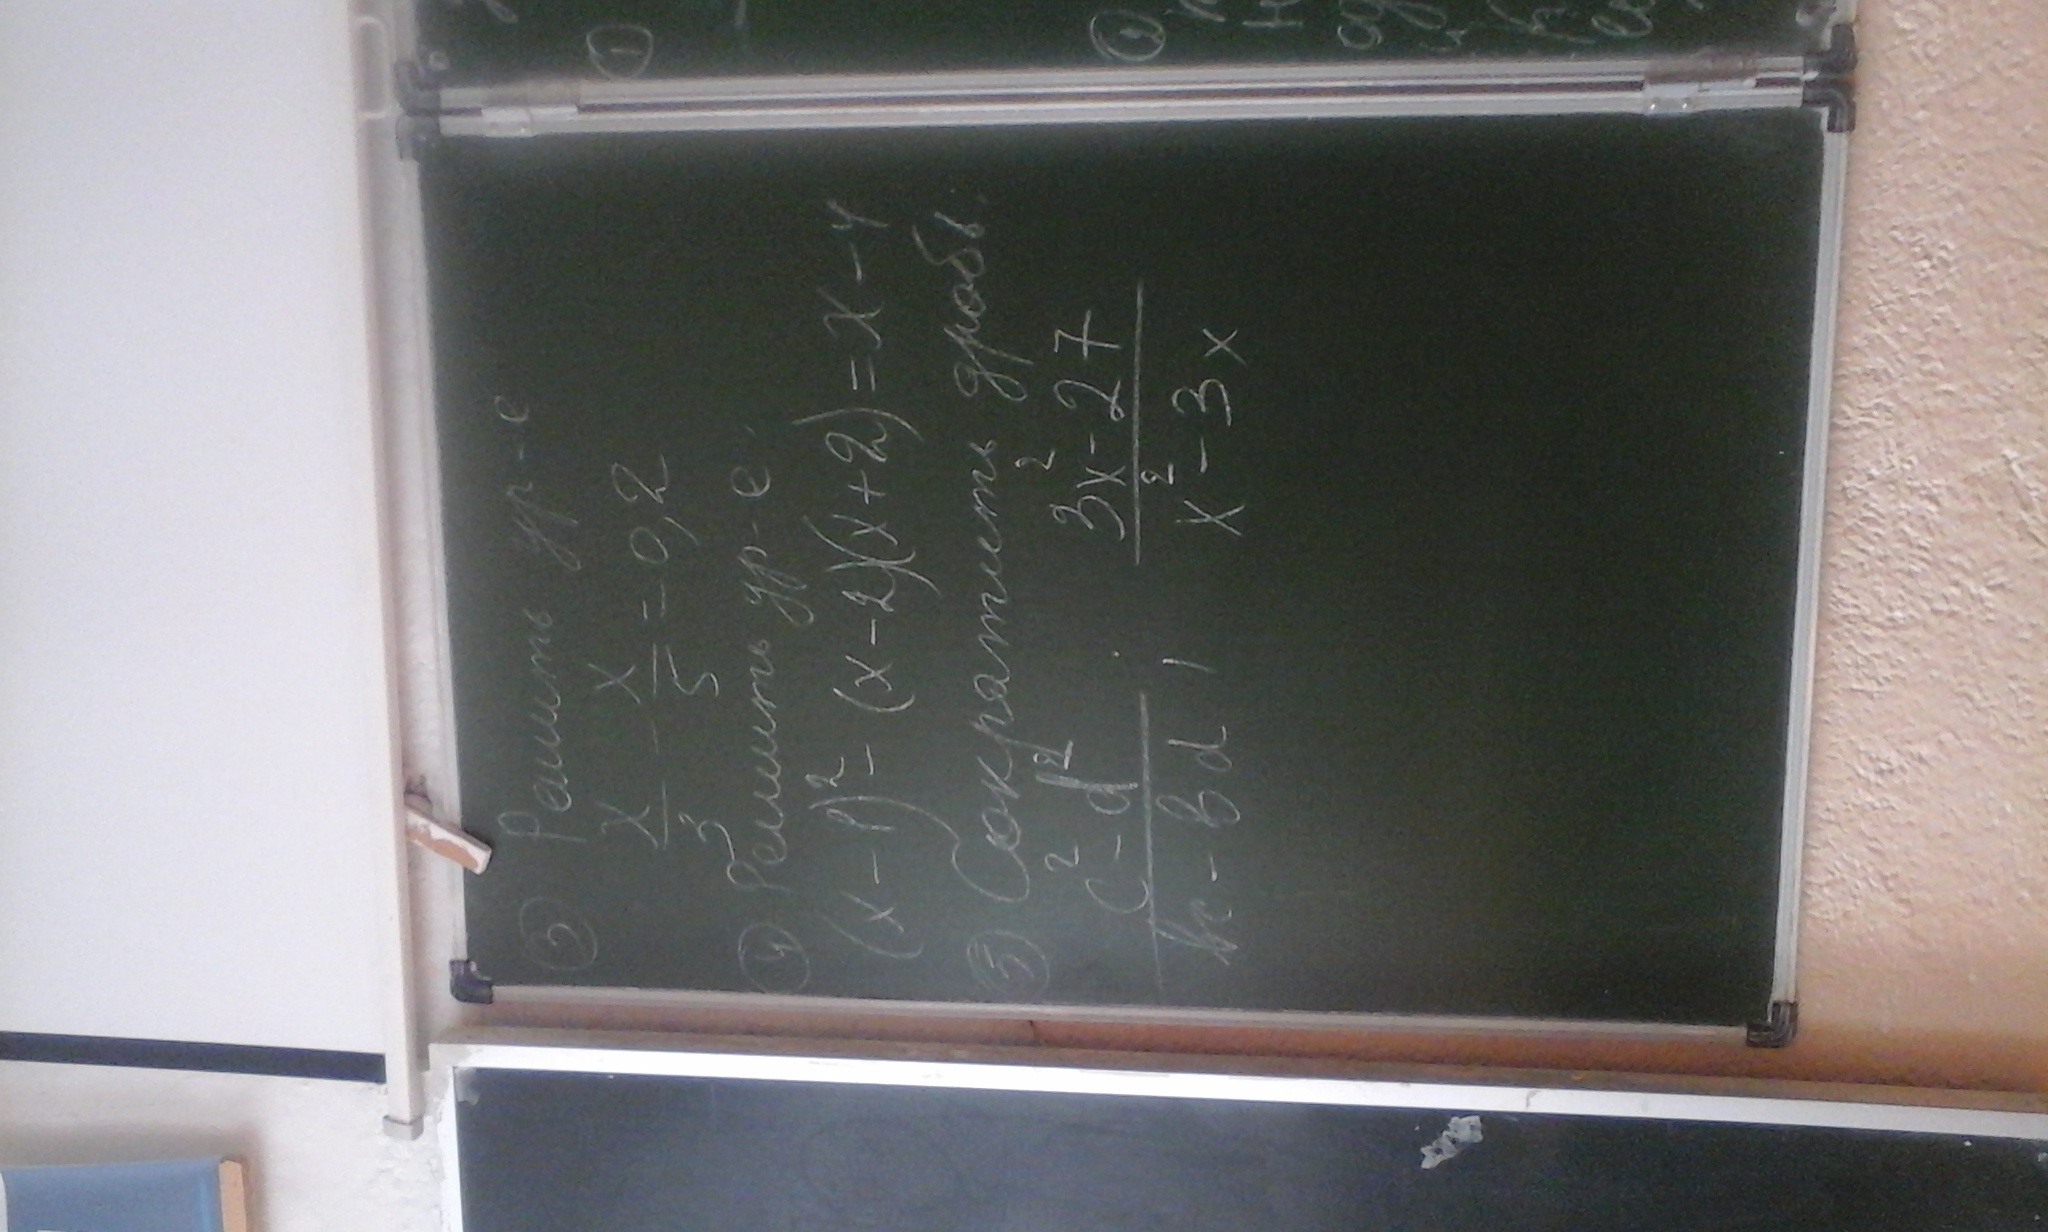 ③ Решить ур-е
x/3 - x/5 = -0,2
④ Решить ур-е.
(x-1)² - (x-2)(x+2) = x-4
⑤ Сократить дробь.
(c² - d²)/(bc - bd) ; (3x² - 27)/(x² - 3x)
①
②